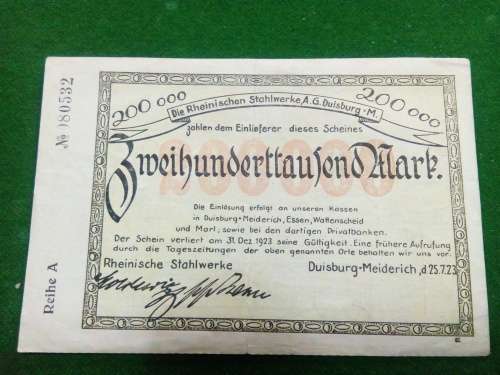 200 000
200 000
Die Rheinischen Stahlwerke, A.G. Duisburg-M.
zahlen dem Einlieferer dieses Scheines
Zweihunderttausend Mark.
200 000
Die Einlösung erfolgt an unseren Kassen
in Duisburg-Meiderich, Essen, Wattenscheid
und Marl, sowie bei den dortigen Privatbanken.
Der Schein verliert am 31. Dez. 1923 seine Gültigkeit. Eine frühere Aufrufung
durch die Tageszeitungen der oben genannten Orte behalten wir uns vor.
Rheinische Stahlwerke
Duisburg-Meiderich, d. 25.7.23
№ 080532
Reihe A